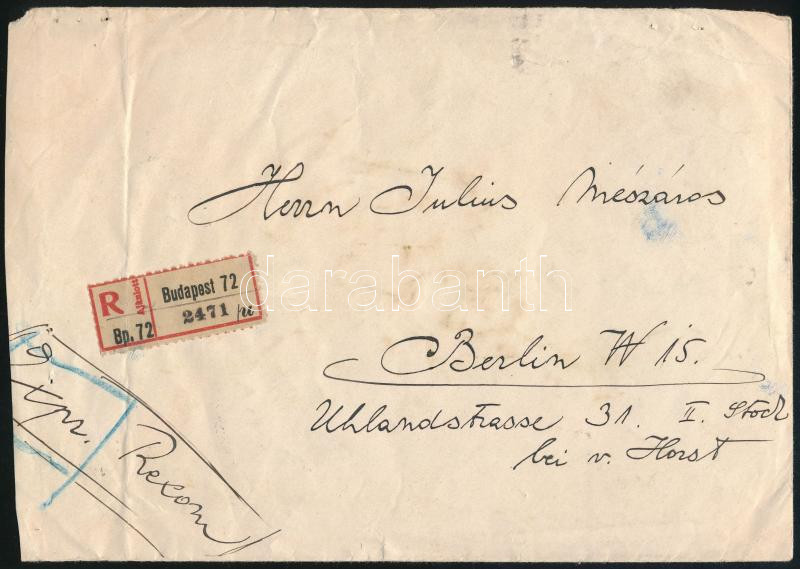 Herrn Julius Mészáros
R Ajánlott Budapest 72
Bp. 72 2471
darabanth
Berlin W 15.
Uhlandstrasse 31. II. Stock
bei v. Horst
Expr.
Rekom